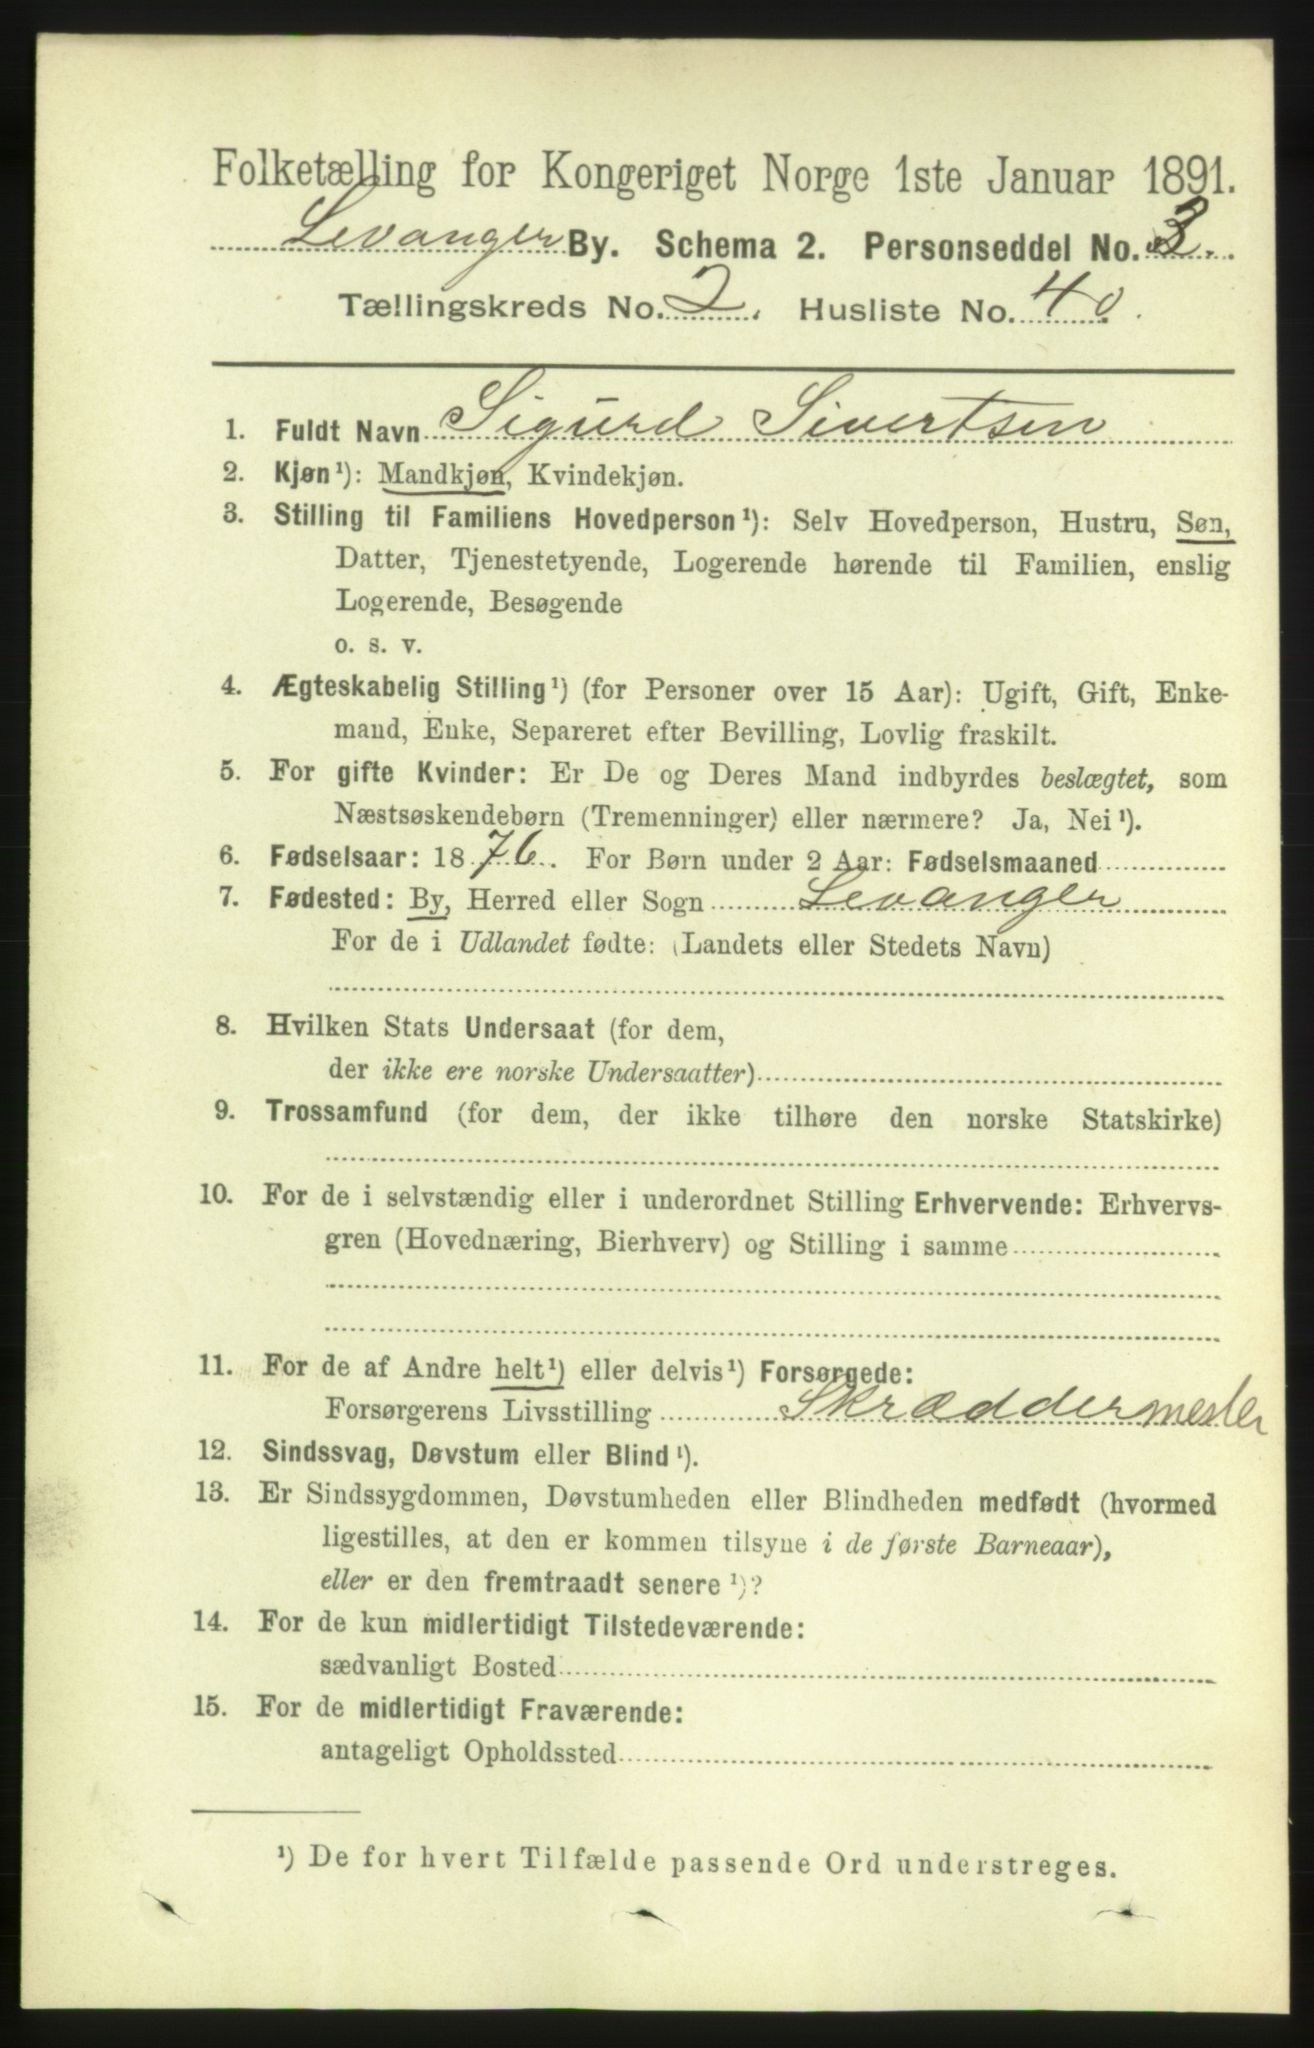 Folketælling for Kongeriget Norge 1ste Januar 1891.
Levanger By. Schema 2. Personseddel No. 3.
Tællingskreds No. 2. Husliste No. 40.
1. Fuldt Navn Sigurd Sivertsen
2. Kjøn¹): Mandkjøn, Kvindekjøn.
3. Stilling til Familiens Hovedperson¹): Selv Hovedperson, Hustru, Søn,
Datter, Tjenestetyende, Logerende hørende til Familien, enslig
Logerende, Besøgende
o. s. v.
4. Ægteskabelig Stilling¹) (for Personer over 15 Aar): Ugift, Gift, Enke-
mand, Enke, Separeret efter Bevilling, Lovlig fraskilt.
5. For gifte Kvinder: Er De og Deres Mand indbyrdes beslægtet, som
Næstsøskendebørn (Tremenninger) eller nærmere? Ja, Nei¹).
6. Fødselsaar: 1876. For Børn under 2 Aar: Fødselsmaaned
7. Fødested: By, Herred eller Sogn Levanger
For de i Udlandet fødte: (Landets eller Stedets Navn)
8. Hvilken Stats Undersaat (for dem,
der ikke ere norske Undersaatter)
9. Trossamfund (for dem, der ikke tilhøre den norske Statskirke)
10. For de i selvstændig eller i underordnet Stilling Erhvervende: Erhvervs-
gren (Hovednæring, Bierhverv) og Stilling i samme
11. For de af Andre helt¹) eller delvis¹) Forsørgede:
Forsørgerens Livsstilling Skræddermester
12. Sindssvag, Døvstum eller Blind¹).
13. Er Sindssygdommen, Døvstumheden eller Blindheden medfødt (hvormed
ligestilles, at den er kommen tilsyne i de første Barneaar),
eller er den fremtraadt senere¹)?
14. For de kun midlertidigt Tilstedeværende:
sædvanligt Bosted
15. For de midlertidigt Fraværende:
antageligt Opholdssted
¹) De for hvert Tilfælde passende Ord understreges.